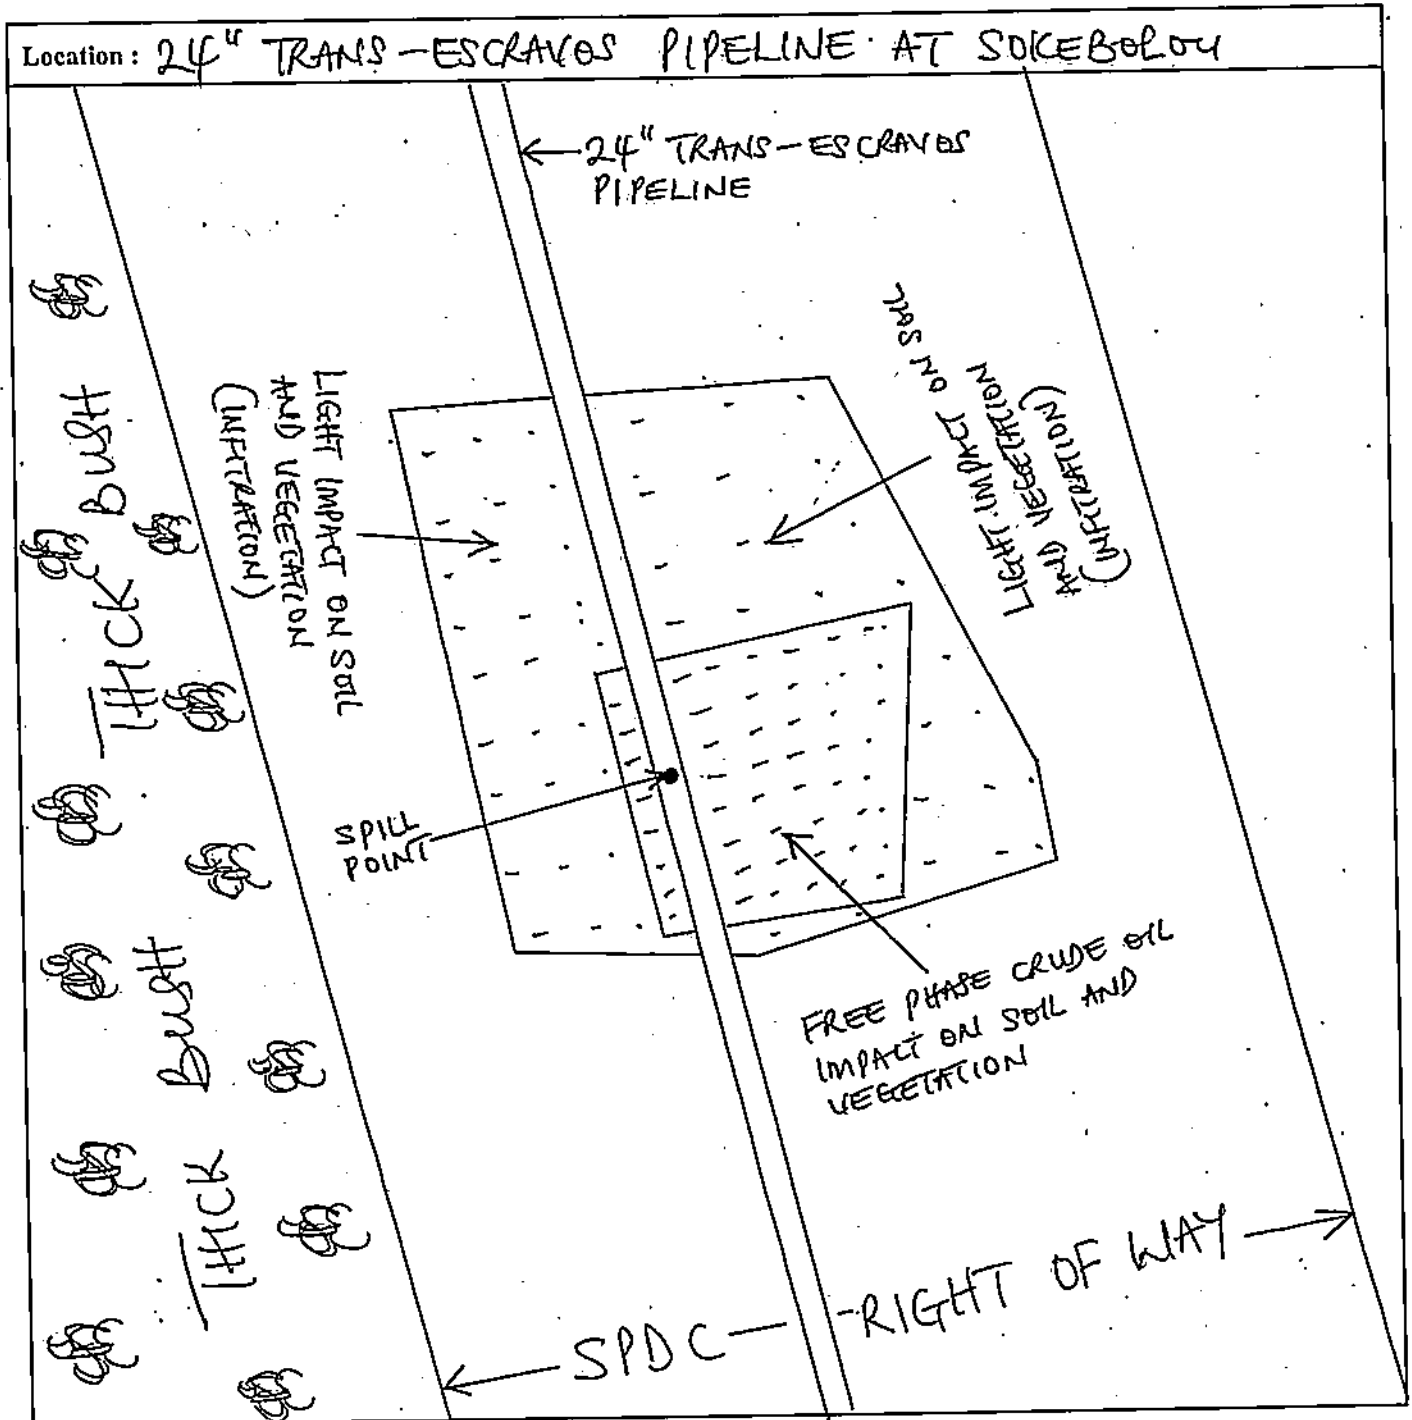 Location : 24" TRANS-ESCRAVOS PIPELINE AT SOKEBOLOU
24" TRANS-ESCRAVOS
PIPELINE
LIGHT IMPACT ON SOIL
AND VEGETATION
(INFITRATION)
LIGHT IMPACT ON SOIL
AND VEGETATION
(INFITRATION)
THICK BUSH
SPILL
POINT
FREE PHASE CRUDE OIL
IMPACT ON SOIL AND
VEGETATION
THICK BUSH
SPDC - RIGHT OF WAY